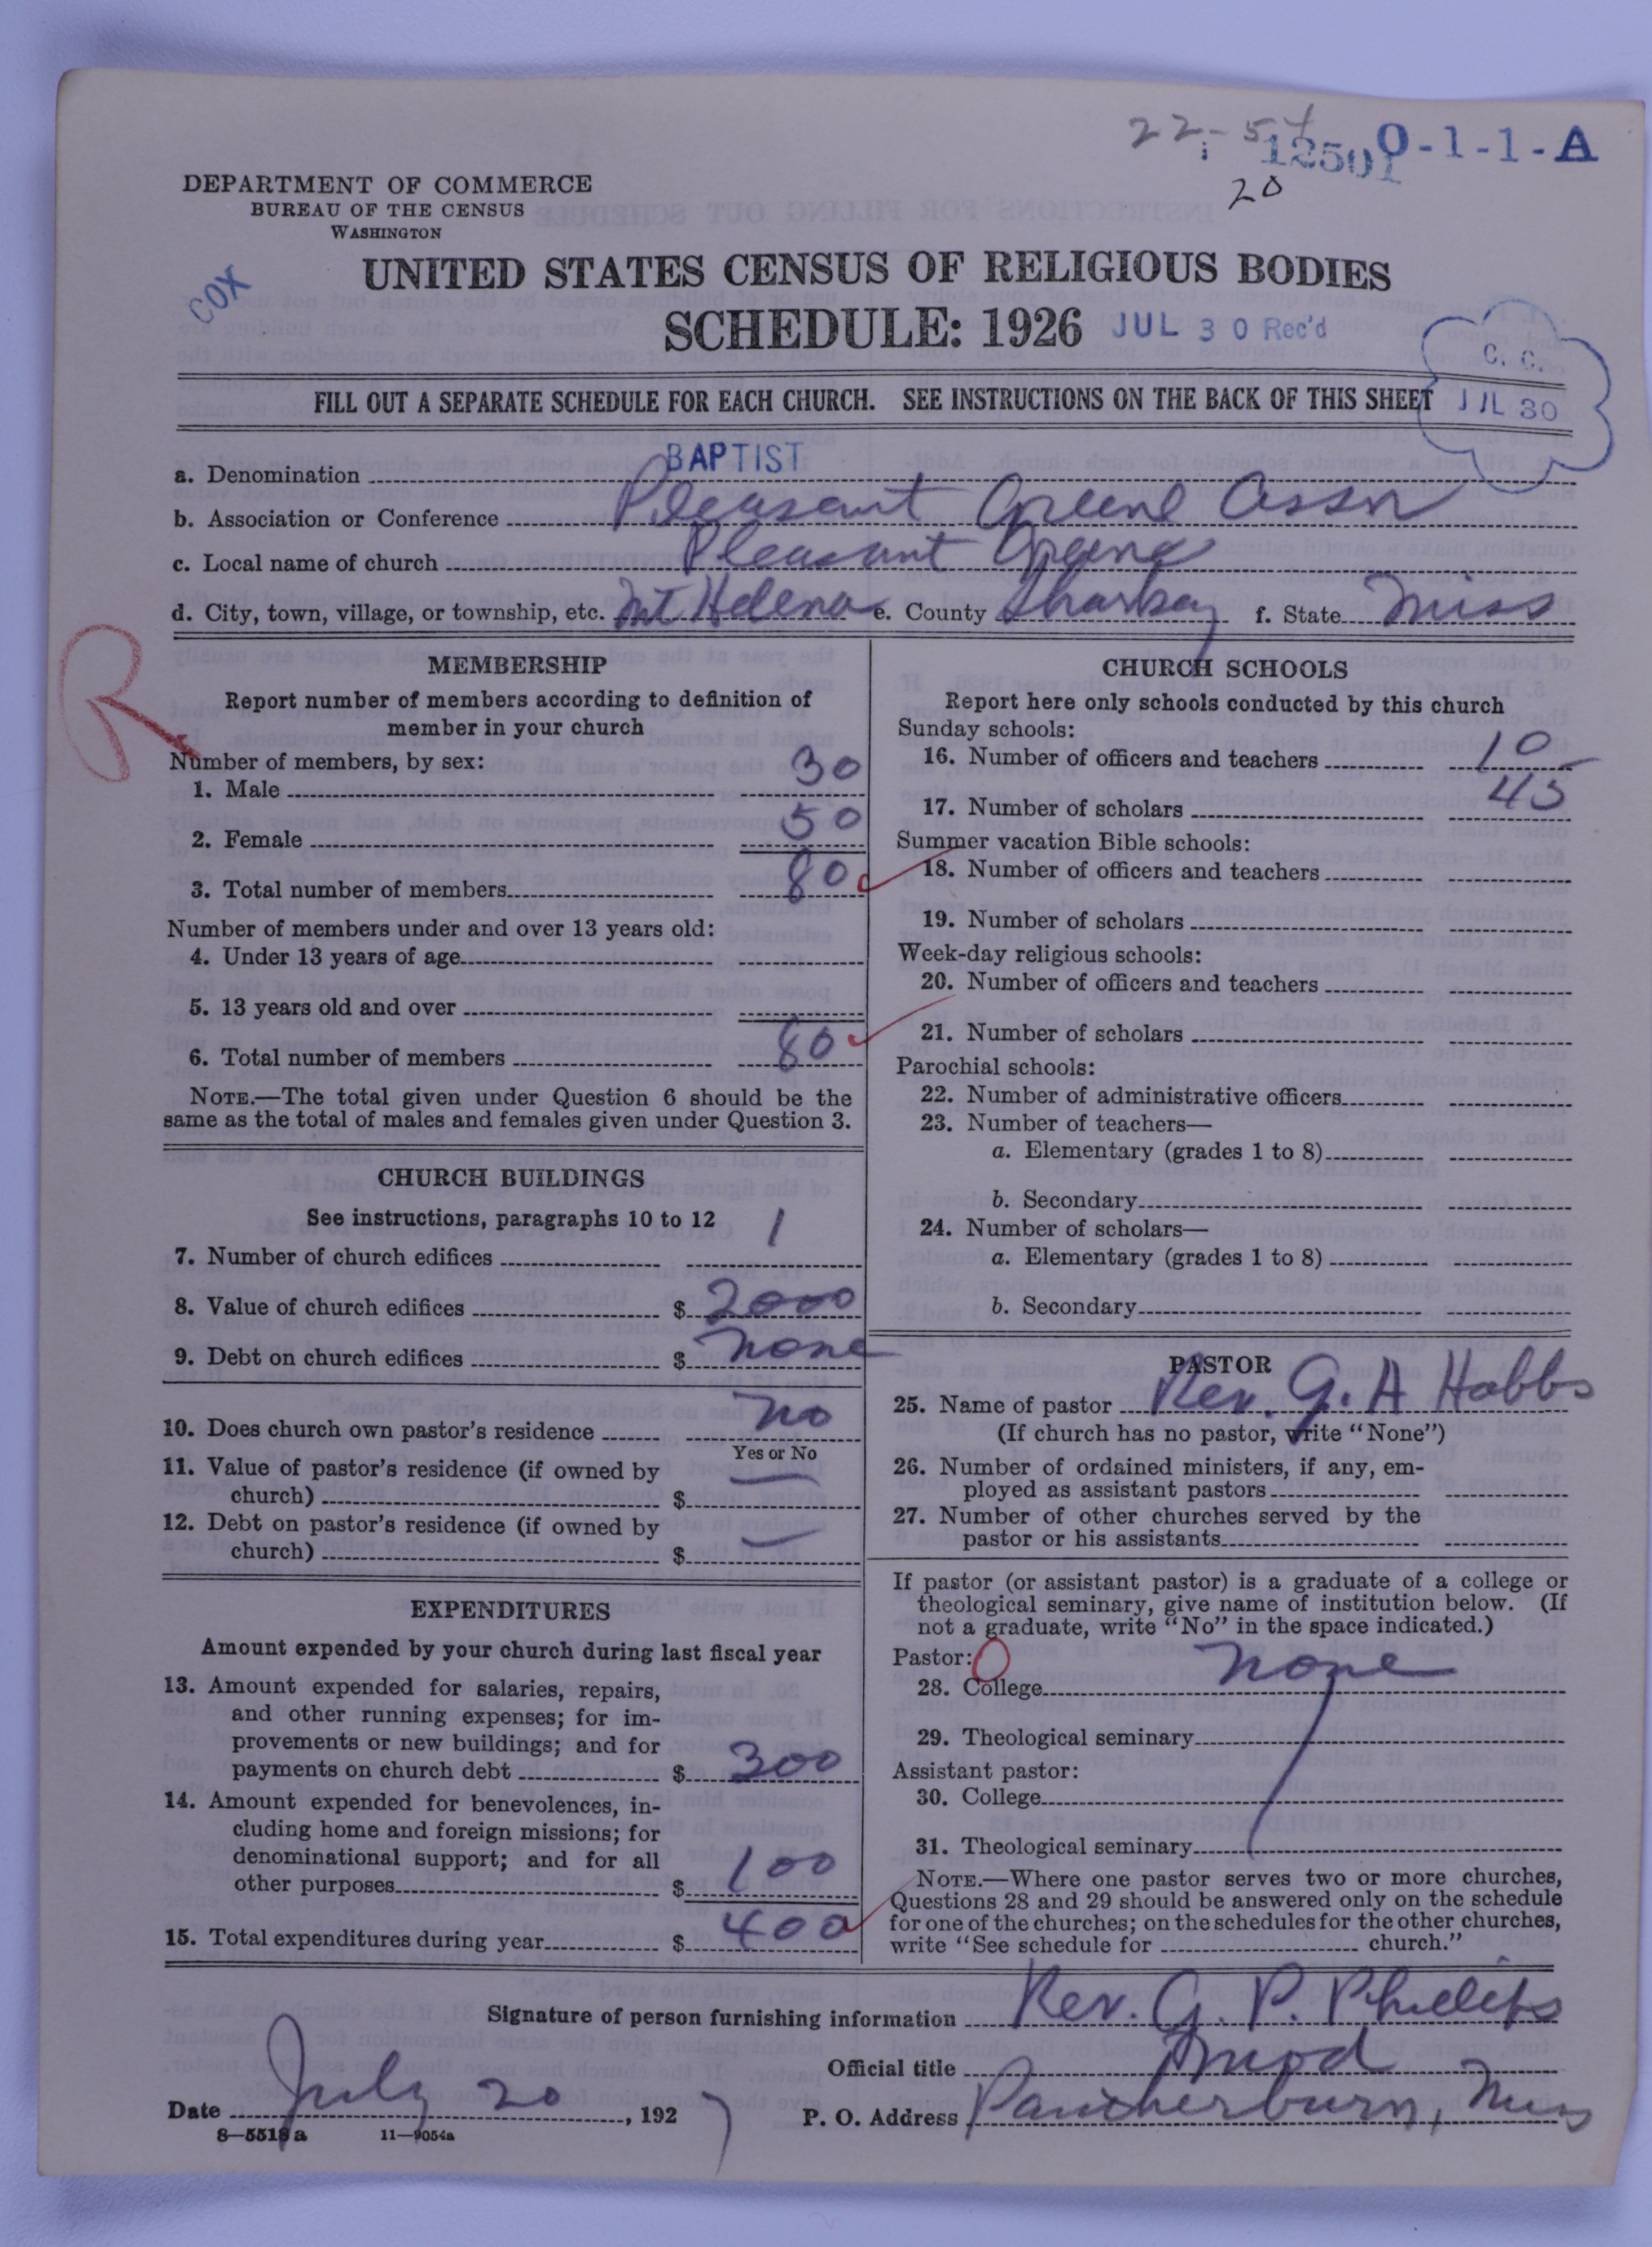 22-54
12501 0-1-1-A
20
DEPARTMENT OF COMMERCE
BUREAU OF THE CENSUS
WASHINGTON
COX
UNITED STATES CENSUS OF RELIGIOUS BODIES
SCHEDULE: 1926 JUL 30 Rec'd
C. C.
JUL 30
FILL OUT A SEPARATE SCHEDULE FOR EACH CHURCH. SEE INSTRUCTIONS ON THE BACK OF THIS SHEET
a. Denomination BAPTIST
b. Association or Conference Pleasant Greene Assn
c. Local name of church Pleasant Greene
d. City, town, village, or township, etc. Mt Helena e. County Sharkey f. State Miss
R
MEMBERSHIP
Report number of members according to definition of
member in your church
Number of members, by sex:
1. Male 30
2. Female 50
3. Total number of members 80
Number of members under and over 13 years old:
4. Under 13 years of age
5. 13 years old and over
6. Total number of members 80
NOTE.—The total given under Question 6 should be the
same as the total of males and females given under Question 3.
CHURCH BUILDINGS
See instructions, paragraphs 10 to 12
7. Number of church edifices 1
8. Value of church edifices $ 2000
9. Debt on church edifices $ none
10. Does church own pastor's residence no
Yes or No
11. Value of pastor's residence (if owned by
church) $ —
12. Debt on pastor's residence (if owned by
church) $ —
EXPENDITURES
Amount expended by your church during last fiscal year
13. Amount expended for salaries, repairs,
and other running expenses; for im-
provements or new buildings; and for
payments on church debt $ 300
14. Amount expended for benevolences, in-
cluding home and foreign missions; for
denominational support; and for all
other purposes $ 100
15. Total expenditures during year $ 400
CHURCH SCHOOLS
Report here only schools conducted by this church
Sunday schools:
16. Number of officers and teachers 10
17. Number of scholars 45
Summer vacation Bible schools:
18. Number of officers and teachers
19. Number of scholars
Week-day religious schools:
20. Number of officers and teachers
21. Number of scholars
Parochial schools:
22. Number of administrative officers
23. Number of teachers—
a. Elementary (grades 1 to 8)
b. Secondary
24. Number of scholars—
a. Elementary (grades 1 to 8)
b. Secondary
PASTOR
25. Name of pastor Rev. G. A Hobbs
(If church has no pastor, write "None")
26. Number of ordained ministers, if any, em-
ployed as assistant pastors
27. Number of other churches served by the
pastor or his assistants
If pastor (or assistant pastor) is a graduate of a college or
theological seminary, give name of institution below. (If
not a graduate, write "No" in the space indicated.)
Pastor: 0
28. College none
29. Theological seminary
Assistant pastor:
30. College
31. Theological seminary
NOTE.—Where one pastor serves two or more churches,
Questions 28 and 29 should be answered only on the schedule
for one of the churches; on the schedules for the other churches,
write "See schedule for church."
Signature of person furnishing information Rev. G. P. Phillips
Official title Mod
Date July 20, 1927 P. O. Address Pantherburn, Miss
8—5518 a 11—9054a